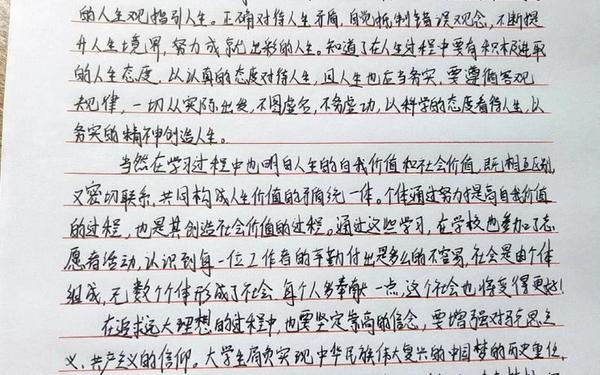 的人生观指引人生。正确对待人生矛盾,自觉抵制错误观念,不断提
升人生境界,努力成就出彩的人生。知道了在人生过程中要有积极进取
的人生态度,以认真的态度对待人生,且人生也应当务实,要遵循客观
规律,一切从实际出发,不图虚名,不务虚功,以科学的态度看待人生,以
务实的精神创造人生。
当然在学习过程中也明白人生的自我价值和社会价值,既相互区别,
又密切联系,共同构成人生价值的矛盾统一体。个体通过努力提高自我价值
的过程,也是其创造社会价值的过程。通过这些学习,在学校也参加了志
愿者活动,认识到每一位工作者的辛勤付出是多么的不容易,社会是由个体
组成,无数个个体形成了社会,每个人多奉献一点,这个社会也将变得更好!
在追求远大理想的过程中,也要坚定崇高的信念,要增强对马克思主
义、共产主义的信仰。大学生肩负实现中华民族伟大复兴的中国梦的历史重任,